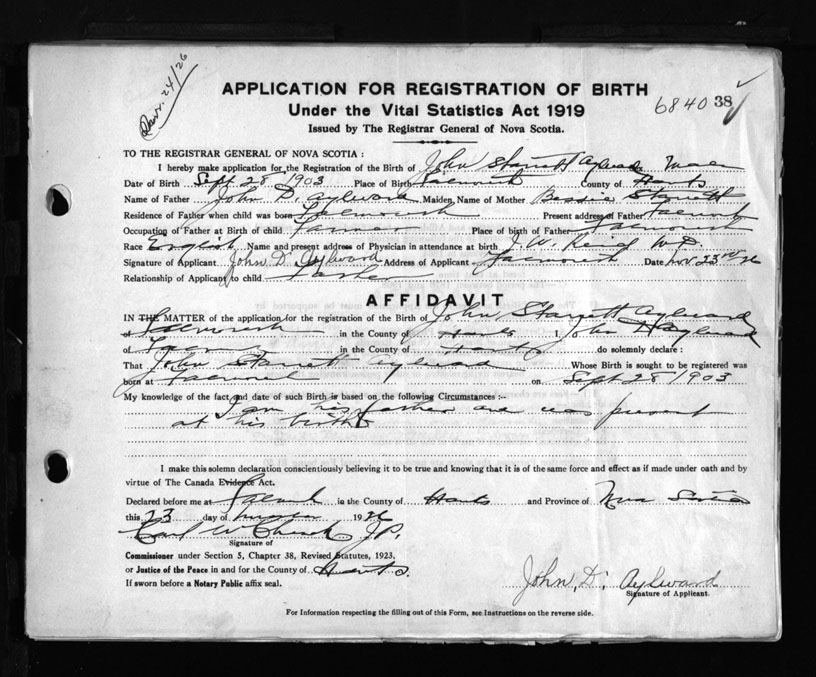 Nov. 24/26
APPLICATION FOR REGISTRATION OF BIRTH
Under the Vital Statistics Act 1919
6840 38
Issued by The Registrar General of Nova Scotia.
TO THE REGISTRAR GENERAL OF NOVA SCOTIA :
I hereby make application for the Registration of the Birth of John Starrett Aylward Male
Date of Birth Sept 28 1903 Place of Birth Falmouth County of Hants
Name of Father John D. Aylward Maiden Name of Mother Bessie Starrett
Residence of Father when child was born Falmouth Present address of Father Falmouth
Occupation of Father at Birth of child Farmer Place of birth of Father Falmouth
Race English Name and present address of Physician in attendance at birth J. W. Reid M.D.
Signature of Applicant John D. Aylward Address of Applicant Falmouth Date Nov 23rd 26
Relationship of Applicant to child Father
AFFIDAVIT
IN THE MATTER of the application for the registration of the Birth of John Starrett Aylward
of Falmouth in the County of Hants I, John D Aylward
of in the County of Hants do solemnly declare :
That John Starrett Aylward Whose Birth is sought to be registered was
born at Falmouth on Sept 28 1903
My knowledge of the fact and date of such Birth is based on the following Circumstances :-
I am his father and was present
at his birth
I make this solemn declaration conscientiously believing it to be true and knowing that it is of the same force and effect as if made under oath and by
virtue of The Canada Evidence Act.
Declared before me at Falmouth in the County of Hants and Province of Nova Scotia
this 23 day of November 1926
Carl W J.P.
Signature of
Commissioner under Section 5, Chapter 38, Revised Statutes, 1923.
or Justice of the Peace in and for the County of Hants.
If sworn before a Notary Public affix seal.
John, D. Aylward
Signature of Applicant.
For Information respecting the filling out of this Form, see Instructions on the reverse side.